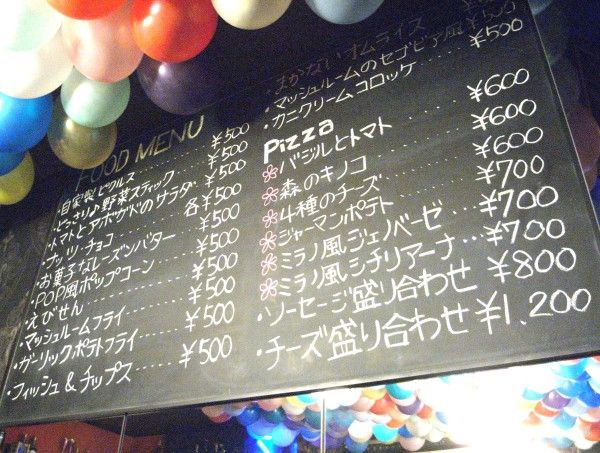 FOOD MENU
・自家製ピクルス ¥500
・どっさり♪野菜スティック ¥500
・トマトとアボガドのサラダ ¥500
・ナッツ・チョコ 各¥500
・お菓子なレーズンバター ¥500
・POP風ポップコーン ¥500
・えびせん ¥500
・マッシュルームフライ ¥500
・ガーリックポテトフライ ¥500
・フィッシュ&チップス ¥500
・まかないオムライス
・マッシュルームのセゴビア風 ¥500
・カニクリームコロッケ ¥500
Pizza
バジルとトマト ¥600
森のキノコ ¥600
4種のチーズ ¥600
ジャーマンポテト ¥700
ミラノ風ジェノベーゼ ¥700
ミラノ風シチリアーナ ¥700
・ソーセージ盛り合わせ ¥800
・チーズ盛り合わせ ¥1,200